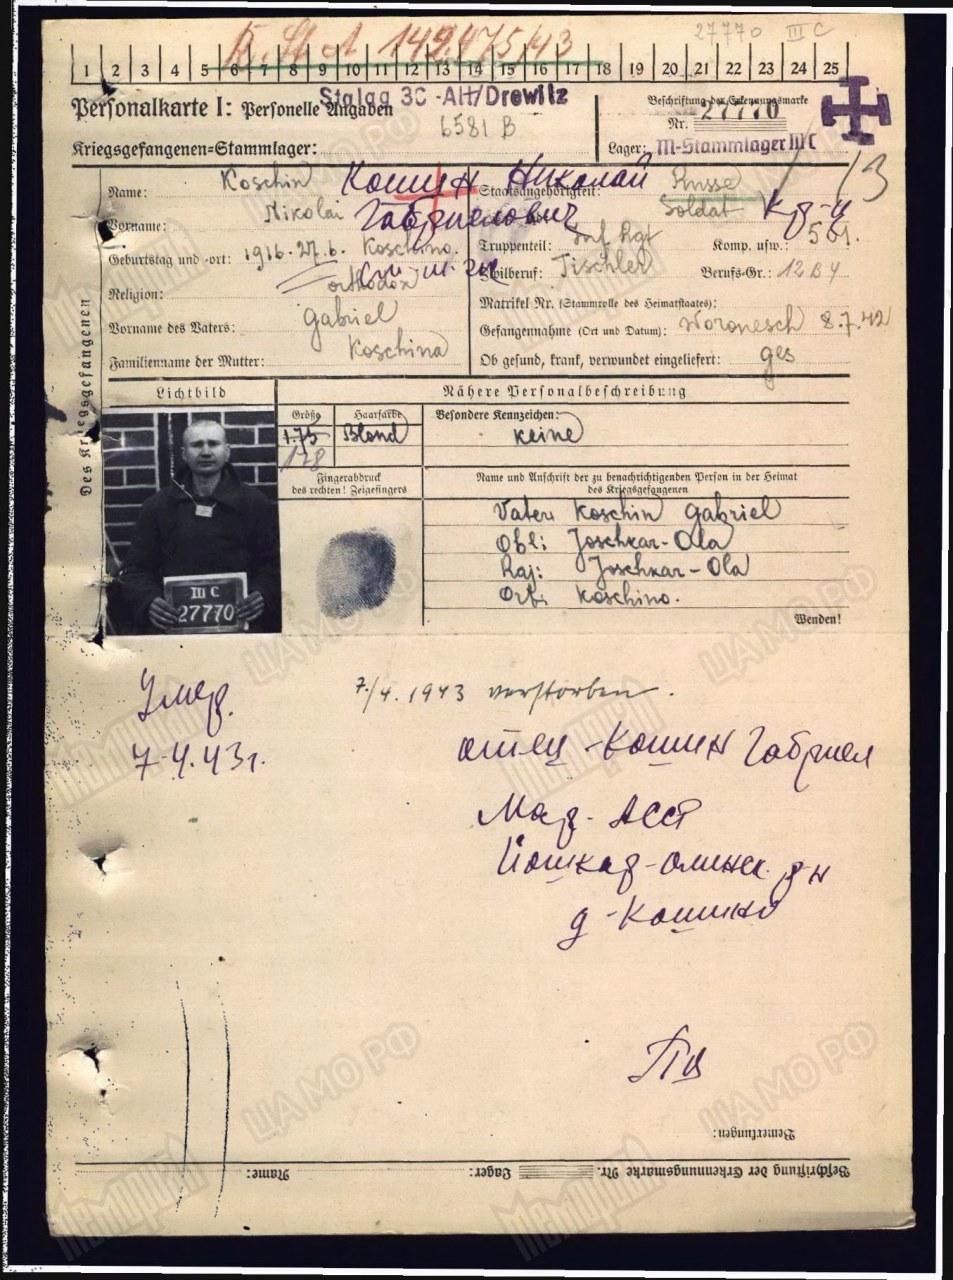 27770 III C
R. St A 149.475/43
1 2 3 4 5 6 7 8 9 10 11 12 13 14 15 16 17 18 19 20 21 22 23 24 25
Personalkarte I: Personelle Angaben
Stalag 3C -Alt/Drewitz
6581 B
Kriegsgefangenen=Stammlager:
Beschriftung der Erkennungsmarke
Nr. 27770
Lager: M-Stammlager III C
13
Des Kriegsgefangenen
Name: Koschin Кошин Николай
Vorname: Nikolai Габриелович
Geburtstag und -ort: 1916. 27.6. Koschino.
Religion: orthodox
Vorname des Vaters: Gabriel
Familienname der Mutter: Koschina
Staatsangehörigkeit: Russe
Soldat Кр-ц
Truppenteil: Inf Rgt Komp. usw.: 501.
Zivilberuf: Tischler Berufs-Gr.: 12 B 4
Matrikel Nr. (Stammrolle des Heimatstaates):
Gefangennahme (Ort und Datum): Woronesch 8.7.42
Ob gesund, krank, verwundet eingeliefert: ges
Lichtbild
Nähere Personalbeschreibung
Größe Haarfarbe Besondere Kennzeichen:
1.75 Blond keine
178
Fingerabdruck
des rechten! Zeigefingers
Name und Anschrift der zu benachrichtigenden Person in der Heimat
des Kriegsgefangenen
Vater: Koschin Gabriel
Obl: Joschkar-Ola
Raj: Joschkar-Ola
Ort: Koschino.
III C
27770
Wenden!
Умер. 7./4. 1943 verstorben.
7.4.43г.
отец - Кошин Габриел
Мар. АССР
Йошкар-олинск. р-н
д-Кошино
Bemerkungen:
Beschriftung der Erkennungsmarke Nr. Lager: Name:
ЦАМО РФ